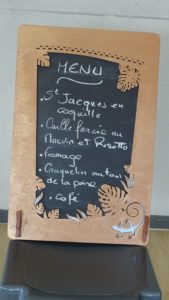 MENU
• St Jacques en
coquille
• Caille farcie au
Floc et Risotto
• Fromage
• Craquelin autour
de la poire
• Café